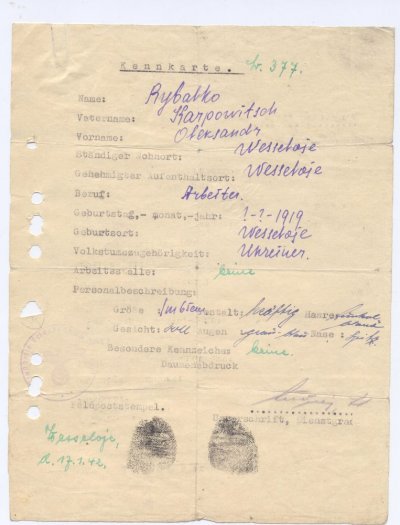 Kennkarte. Nr. 377.
Name: Rybalko
Vatername: Karpowitsch
Vorname: Oleksandr
Ständiger Wohnort: Wesseloje
Genehmigter Aufenthaltsort: Wesseloje
Beruf: Arbeiter.
Geburtstag,- monat,-jahr: ?-?-1919
Geburtsort: Wesseloje
Volkstumszugehörigkeit: Ukrainer.
Arbeitsstelle: keine
Personalbeschreibung:
Größe Gestalt: kräftig Haare:
Gesicht: voll Augen grau-blau Nase:
Besondere Kennzeichen keine.
Daumenabdruck
Feldpoststempel. Unterschrift, Dienstgrad
Wesseloje,
d. 17.1.42.